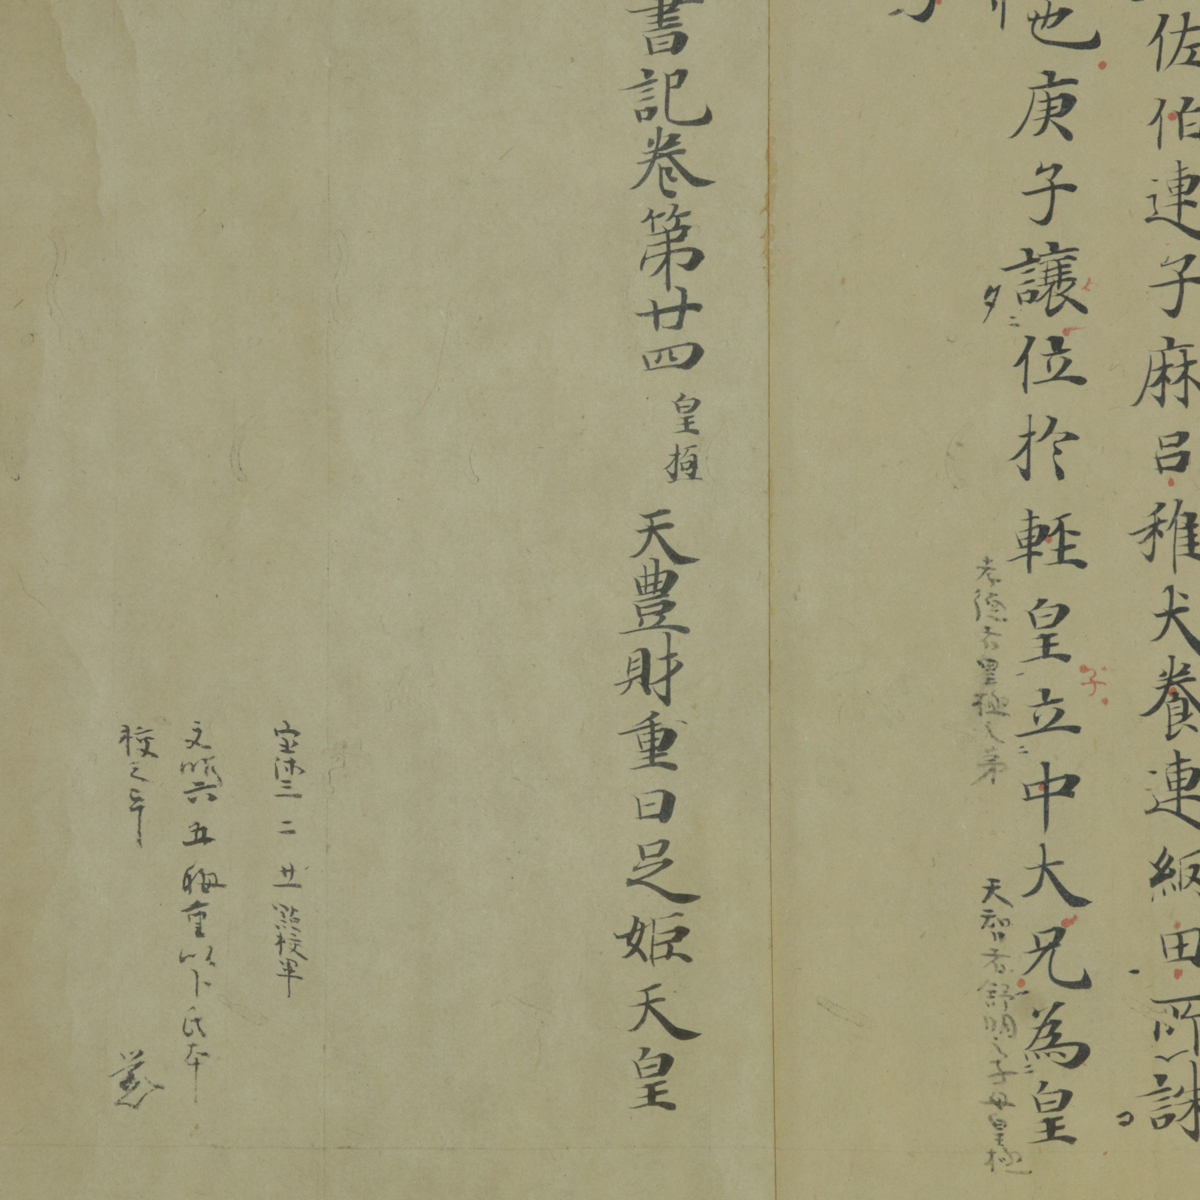 佐伯連子麻呂稚犬養連網田所誅
也庚子讓位於輕皇子立中大兄為皇
孝德者皇極之弟
天智者舒明之子母皇極
書記卷第廿四 皇極 天豊財重日足姫天皇
三 二 廿一 點校畢
文明六 五 晦重以卜氏本
校之畢